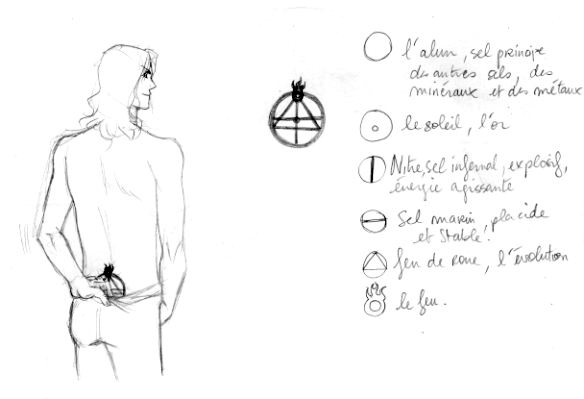 l'alun, sel principe
des autres sels, des
minéraux et des métaux
le soleil, l'or
Nitre, sel infernal, explosif,
énergie agissante
Sel marin, placide
et stable.
feu de roue, l'évolution
le feu.